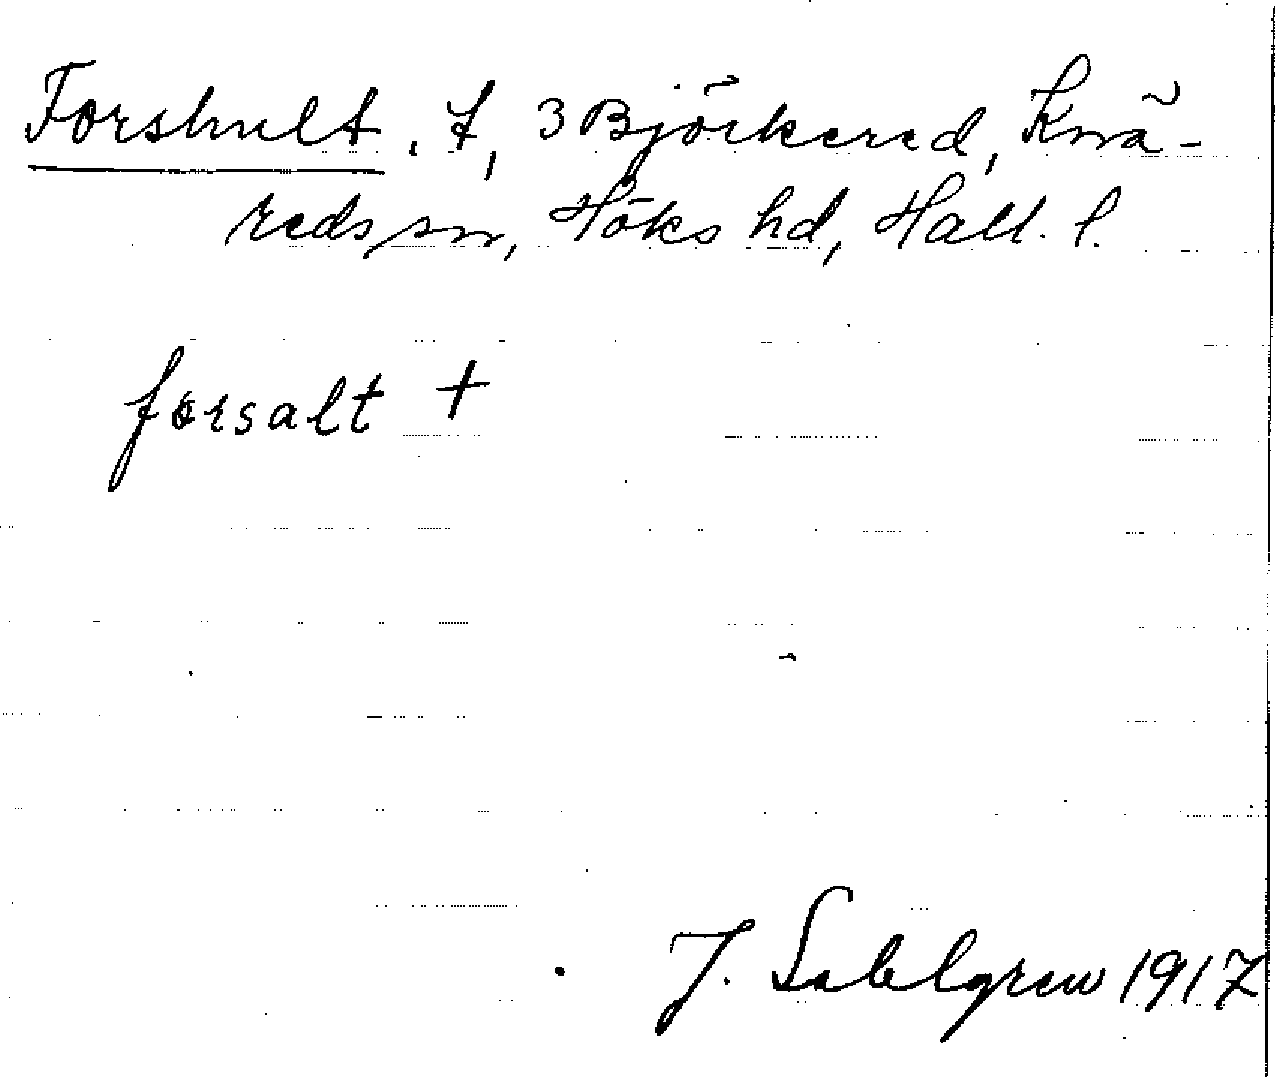 Forshult, t, 3 Björkered, Knä-
reds sn, Höks hd, Hall. l.
forsalt +
J. Sahlgren 1917